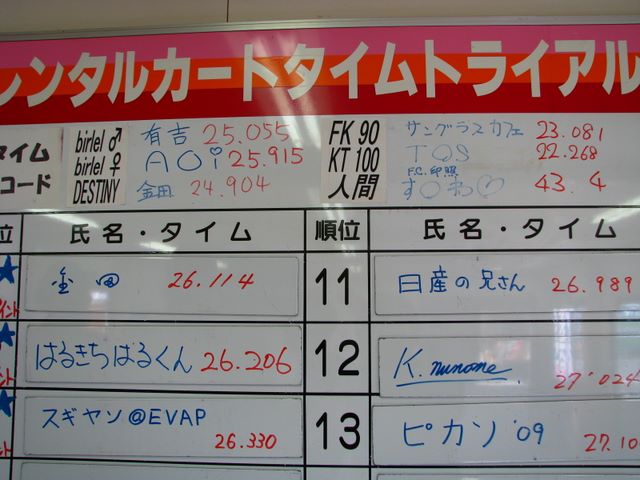 レンタルカートタイムトライアル
birlel♂ 有吉 25.055
タイム birlel♀ AOi 25.915
コード DESTINY 金田 24.904
FK 90 サングラスカフェ 23.081
KT 100 TQS 22.268
人間 43.4
位 氏名・タイム 順位 氏名・タイム
金田 26.114
11 日産の兄さん 26.989
はるきちはるくん 26.206
12 K. 27'024
スギヤン@EVAP 26.330
13 ピカソ '09 27.10